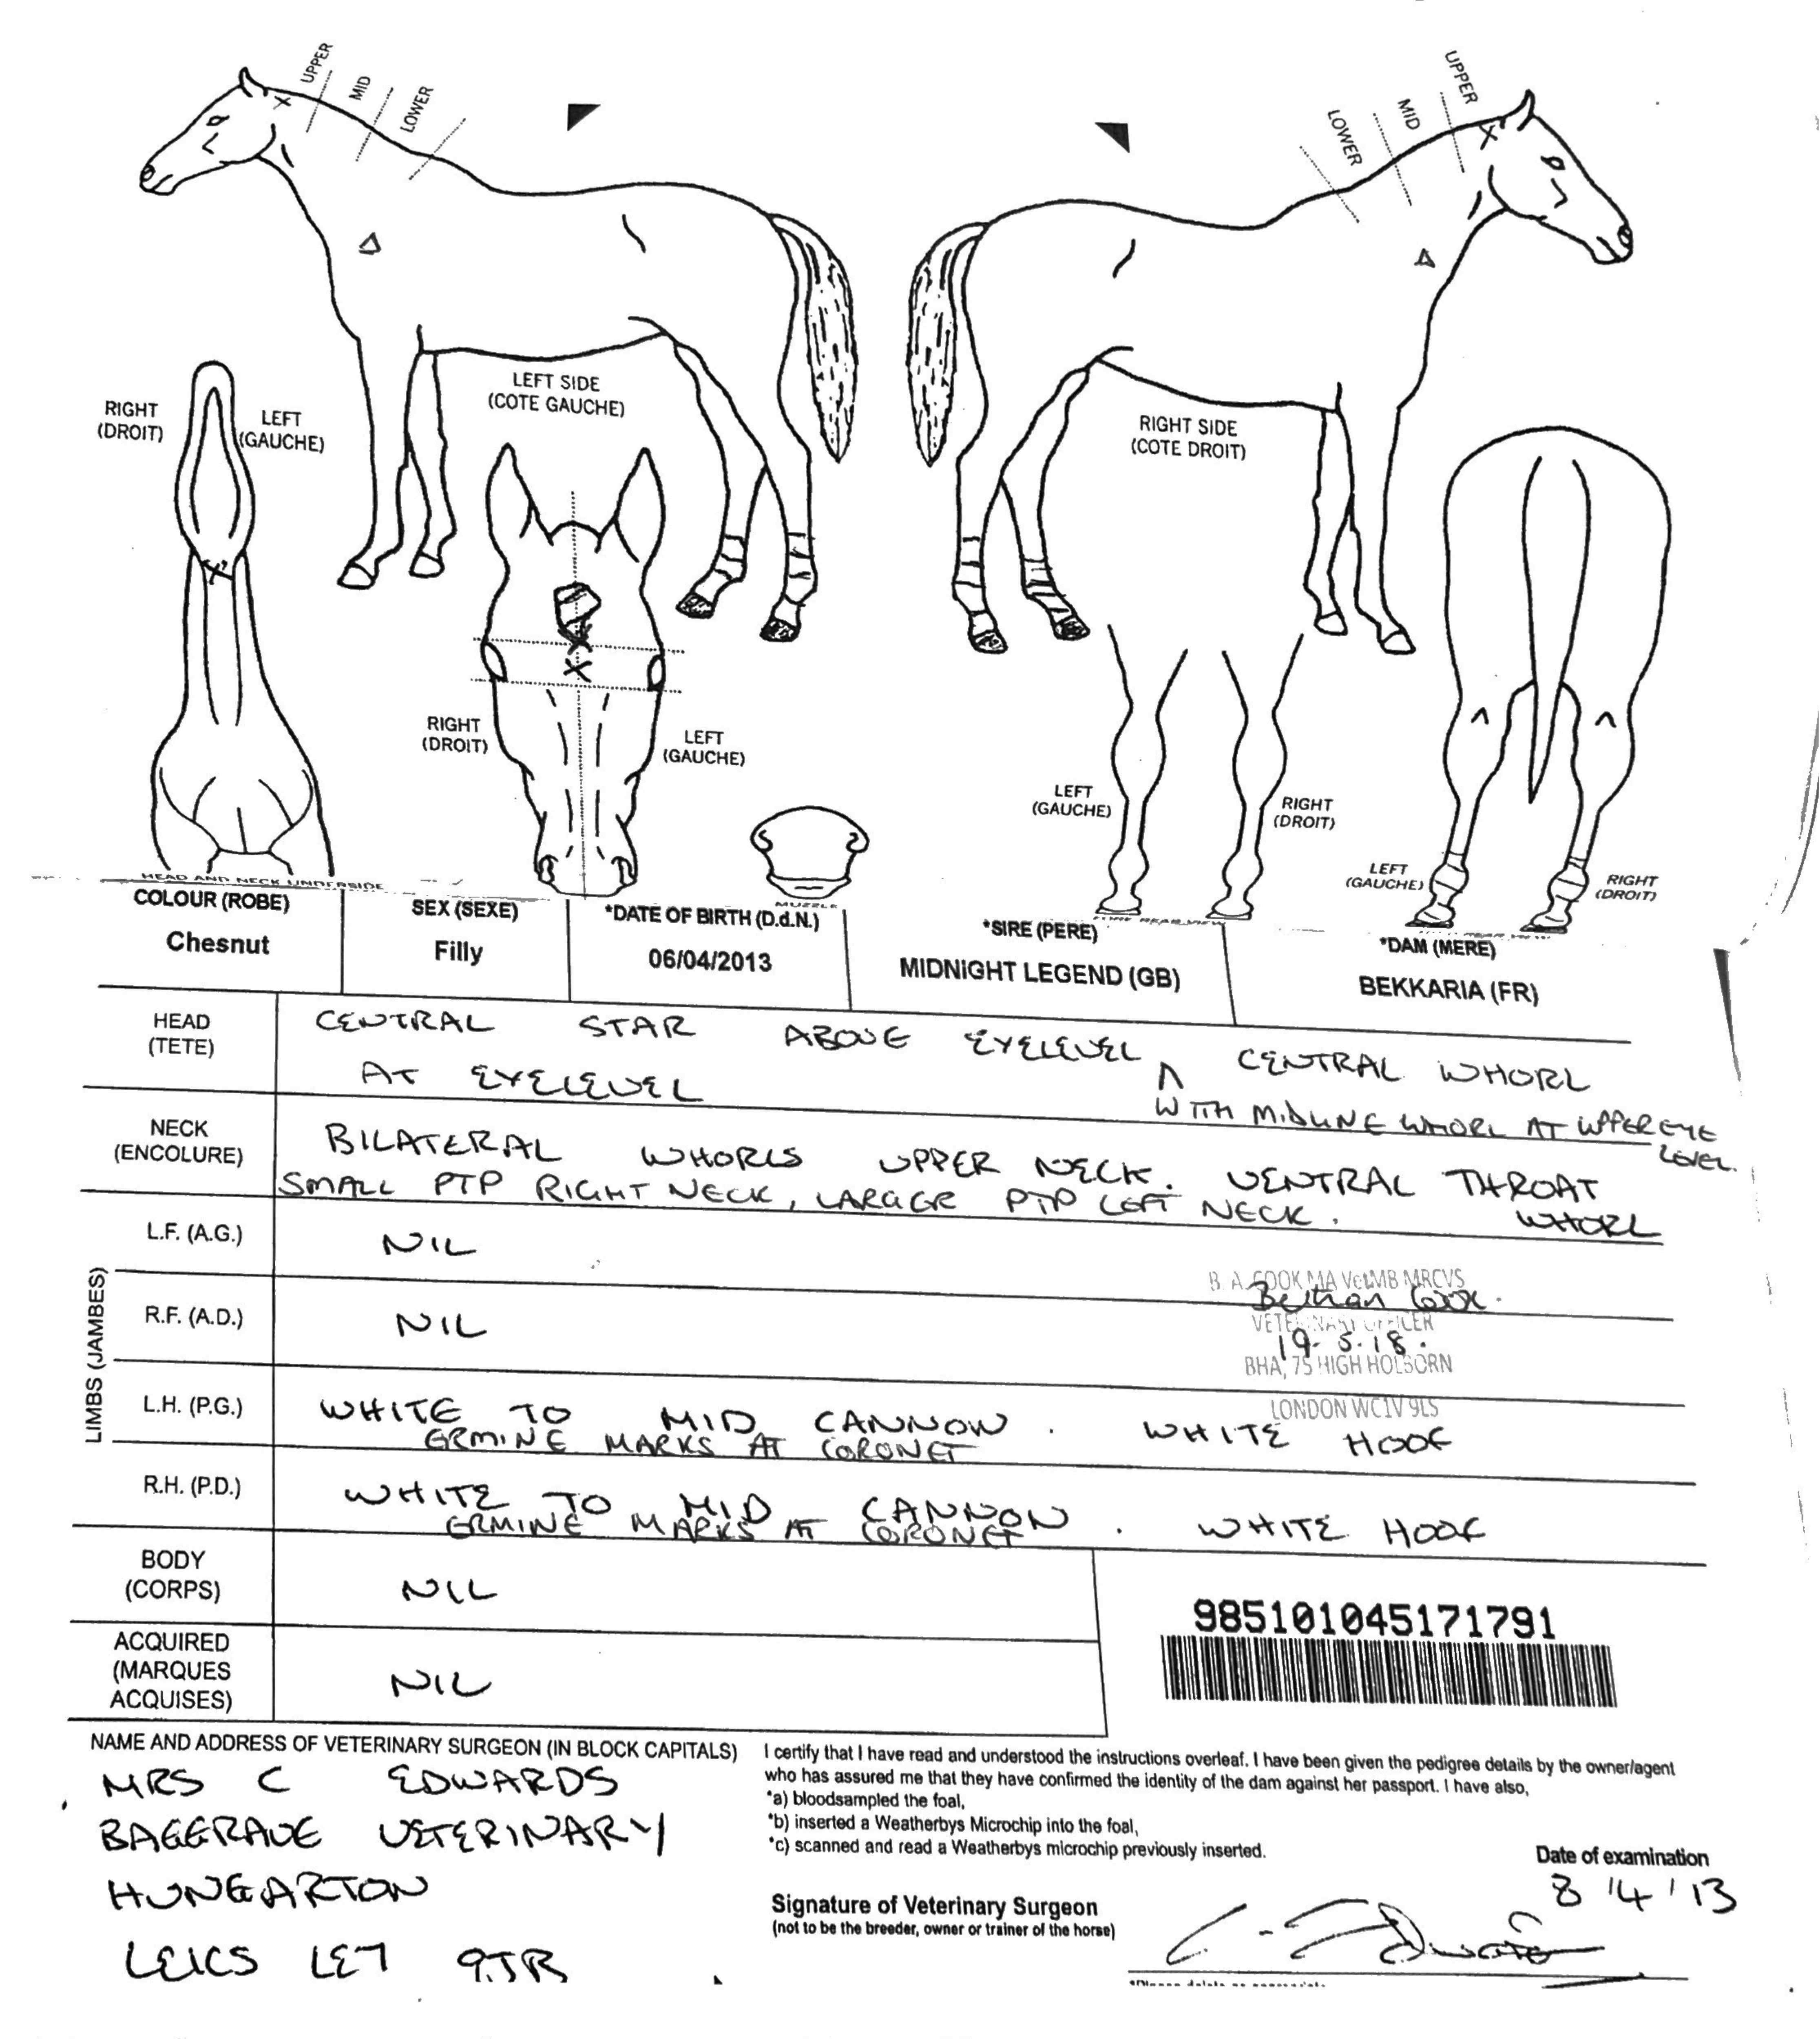 UPPER
MID
LOWER
UPPER
MID
LOWER
LEFT SIDE
(COTE GAUCHE)
RIGHT SIDE
(COTE DROIT)
RIGHT
(DROIT)
LEFT
(GAUCHE)
RIGHT
(DROIT)
LEFT
(GAUCHE)
LEFT
(GAUCHE)
RIGHT
(DROIT)
LEFT
(GAUCHE)
RIGHT
(DROIT)
HEAD AND NECK UNDERSIDE
MUZZLE
FORE REAR VIEW
COLOUR (ROBE)
Chesnut
SEX (SEXE)
Filly
*DATE OF BIRTH (D.d.N.)
06/04/2013
*SIRE (PERE)
MIDNiGHT LEGEND (GB)
*DAM (MERE)
BEKKARIA (FR)
HEAD
(TETE)
CENTRAL STAR ABOVE EYELEVEL CENTRAL WHORL
AT EYELEVEL
WITH MIDLINE WHORL AT UPPER EYE
LEVEL.
NECK
(ENCOLURE)
BILATERAL WHORLS UPPER NECK. VENTRAL THROAT
WHORL
SMALL PTP RIGHT NECK, LARGER PTP LEFT NECK.
LIMBS (JAMBES)
L.F. (A.G.)
NIL
R.F. (A.D.)
NIL
B. A. COOK MA VetMB MRCVS
VETERINARY OFFICER
19.5.18.
BHA, 75 HIGH HOLBORN
LONDON WC1V 9LS
L.H. (P.G.)
WHITE TO MID CANNON. WHITE HOOF
ERMINE MARKS AT CORONET
R.H. (P.D.)
WHITE TO MID CANNON. WHITE HOOF
ERMINE MARKS AT CORONET
BODY
(CORPS)
NIL
985101045171791
ACQUIRED
(MARQUES
ACQUISES)
NIL
NAME AND ADDRESS OF VETERINARY SURGEON (IN BLOCK CAPITALS)
MRS C EDWARDS
BAGGRAVE VETERINARY
HUNGARTON
LEICS LE7 9JR
I certify that I have read and understood the instructions overleaf. I have been given the pedigree details by the owner/agent
who has assured me that they have confirmed the identity of the dam against her passport. I have also,
*a) bloodsampled the foal,
*b) inserted a Weatherbys Microchip into the foal,
*c) scanned and read a Weatherbys microchip previously inserted.
Date of examination
8 '4 '13
Signature of Veterinary Surgeon
(not to be the breeder, owner or trainer of the horse)